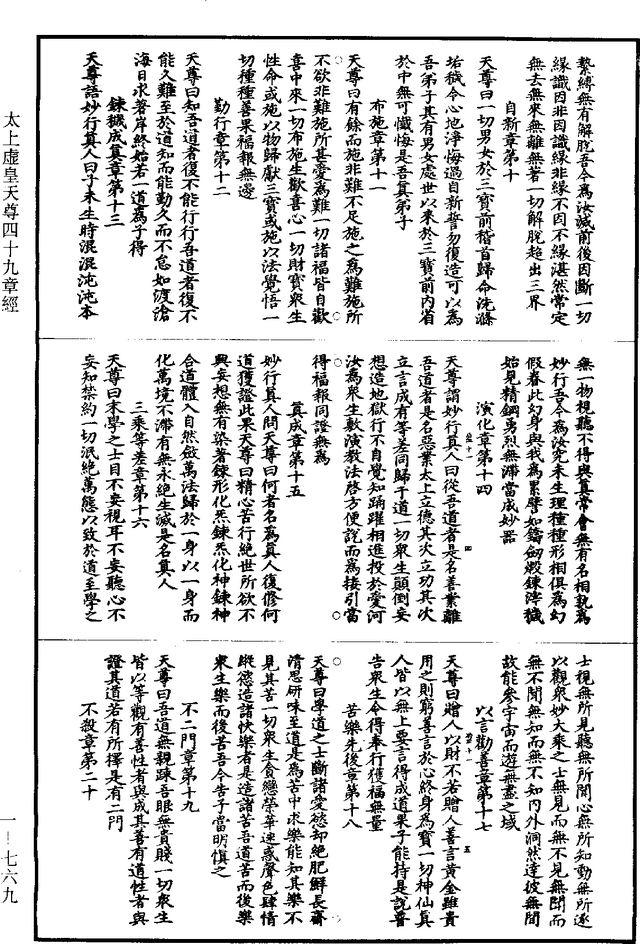 太上虛皇天尊四十九章經
繫縛無有解脫吾今為汝滅前後因斷一切
緣識因非因識緣非緣不因不緣湛然常定
無去無來無離無著一切解脫超出三界
自新章第十
天尊曰一切男女於三寶前稽首歸命洗滌
垢穢令心地淨悔過自新誓勿復造可以為
吾弟子其有男女處世以來於三寶前內省
於中無可懺悔是吾真弟子
布施章第十一
天尊曰有餘而施非難不足施之為難施所
不欲非難施所甚愛為難一切諸福皆自歡
喜中來一切布施生歡喜心一切財寶眾生
性命或施以物歸獻三寶或施以法覺悟一
切種種善果福報無邊
勤行章第十二
天尊曰知吾道者復不能行行吾道者復不
能久難至於道知而能勤久而不怠如渡滄
海日求著岸終始若一道為子得
鍊穢成真章第十三
天尊語妙行真人曰子未生時混混沌沌本
無一物視聽不得與真常會無有名相孰為
妙行吾今為汝究未生理種種形相俱為幻
假眷此幻身與我為累譬如鑄劒煅鍊滓穢
始見精鋼勇烈無滯當成妙器
演化章第十四
天尊謂妙行真人曰從吾道者是名善業離
吾道者是名惡業太上立德其次立功其次
立言成有等差同歸于道一切眾生顛倒妄
想造地獄行不自覺知踊躍相進投於愛河
汝為眾生敷演教法啓方便說而為接引當
得福報同證無為
真成章第十五
妙行真人問天尊曰何者名為真人復修何
道獲證此果天尊曰精心苦行絕世所欲不
興妄想無有染著鍊形化炁鍊炁化神鍊神
合道體入自然斂萬法歸於一身以一身而
化萬境不滯有無永絕生滅是名真人
三乘等差章第十六
天尊曰末學之士目不妄視耳不妄聽心不
妄知禁約一切泯絕萬態以致於道至學之
士視無所見聽無所聞心無所知動無所逐
以觀眾妙大乘之士無見而無不見無聞而
無不聞無知而無不知內外洞然達彼無間
故能參宇宙而遊無盡之域
以言勸善章第十七
天尊曰贈人以財不若贈人善言黃金雖貴
用之則窮善言於心終身為寶一切神仙真
人皆以無上要言得成道果子能持是說普
告眾生令得奉行獲福無量
苦樂先後章第十八
天尊曰學道之士斷諸愛慾却絕肥鮮長齋
清思研味至道是為苦中求樂能知其樂不
見其苦一切眾生貪戀榮華迷惑聲色肆情
蹤慾造諸快樂者是造諸苦吾道苦而後樂
眾生樂而後苦吾今告子當明慎之
不二門章第十九
天尊曰吾道無親踈吾眼無貴賤一切眾生
皆以等觀有善性者與成其善有道性者與
證其道若有所擇是有二門
不殺章第二十
一—七六九